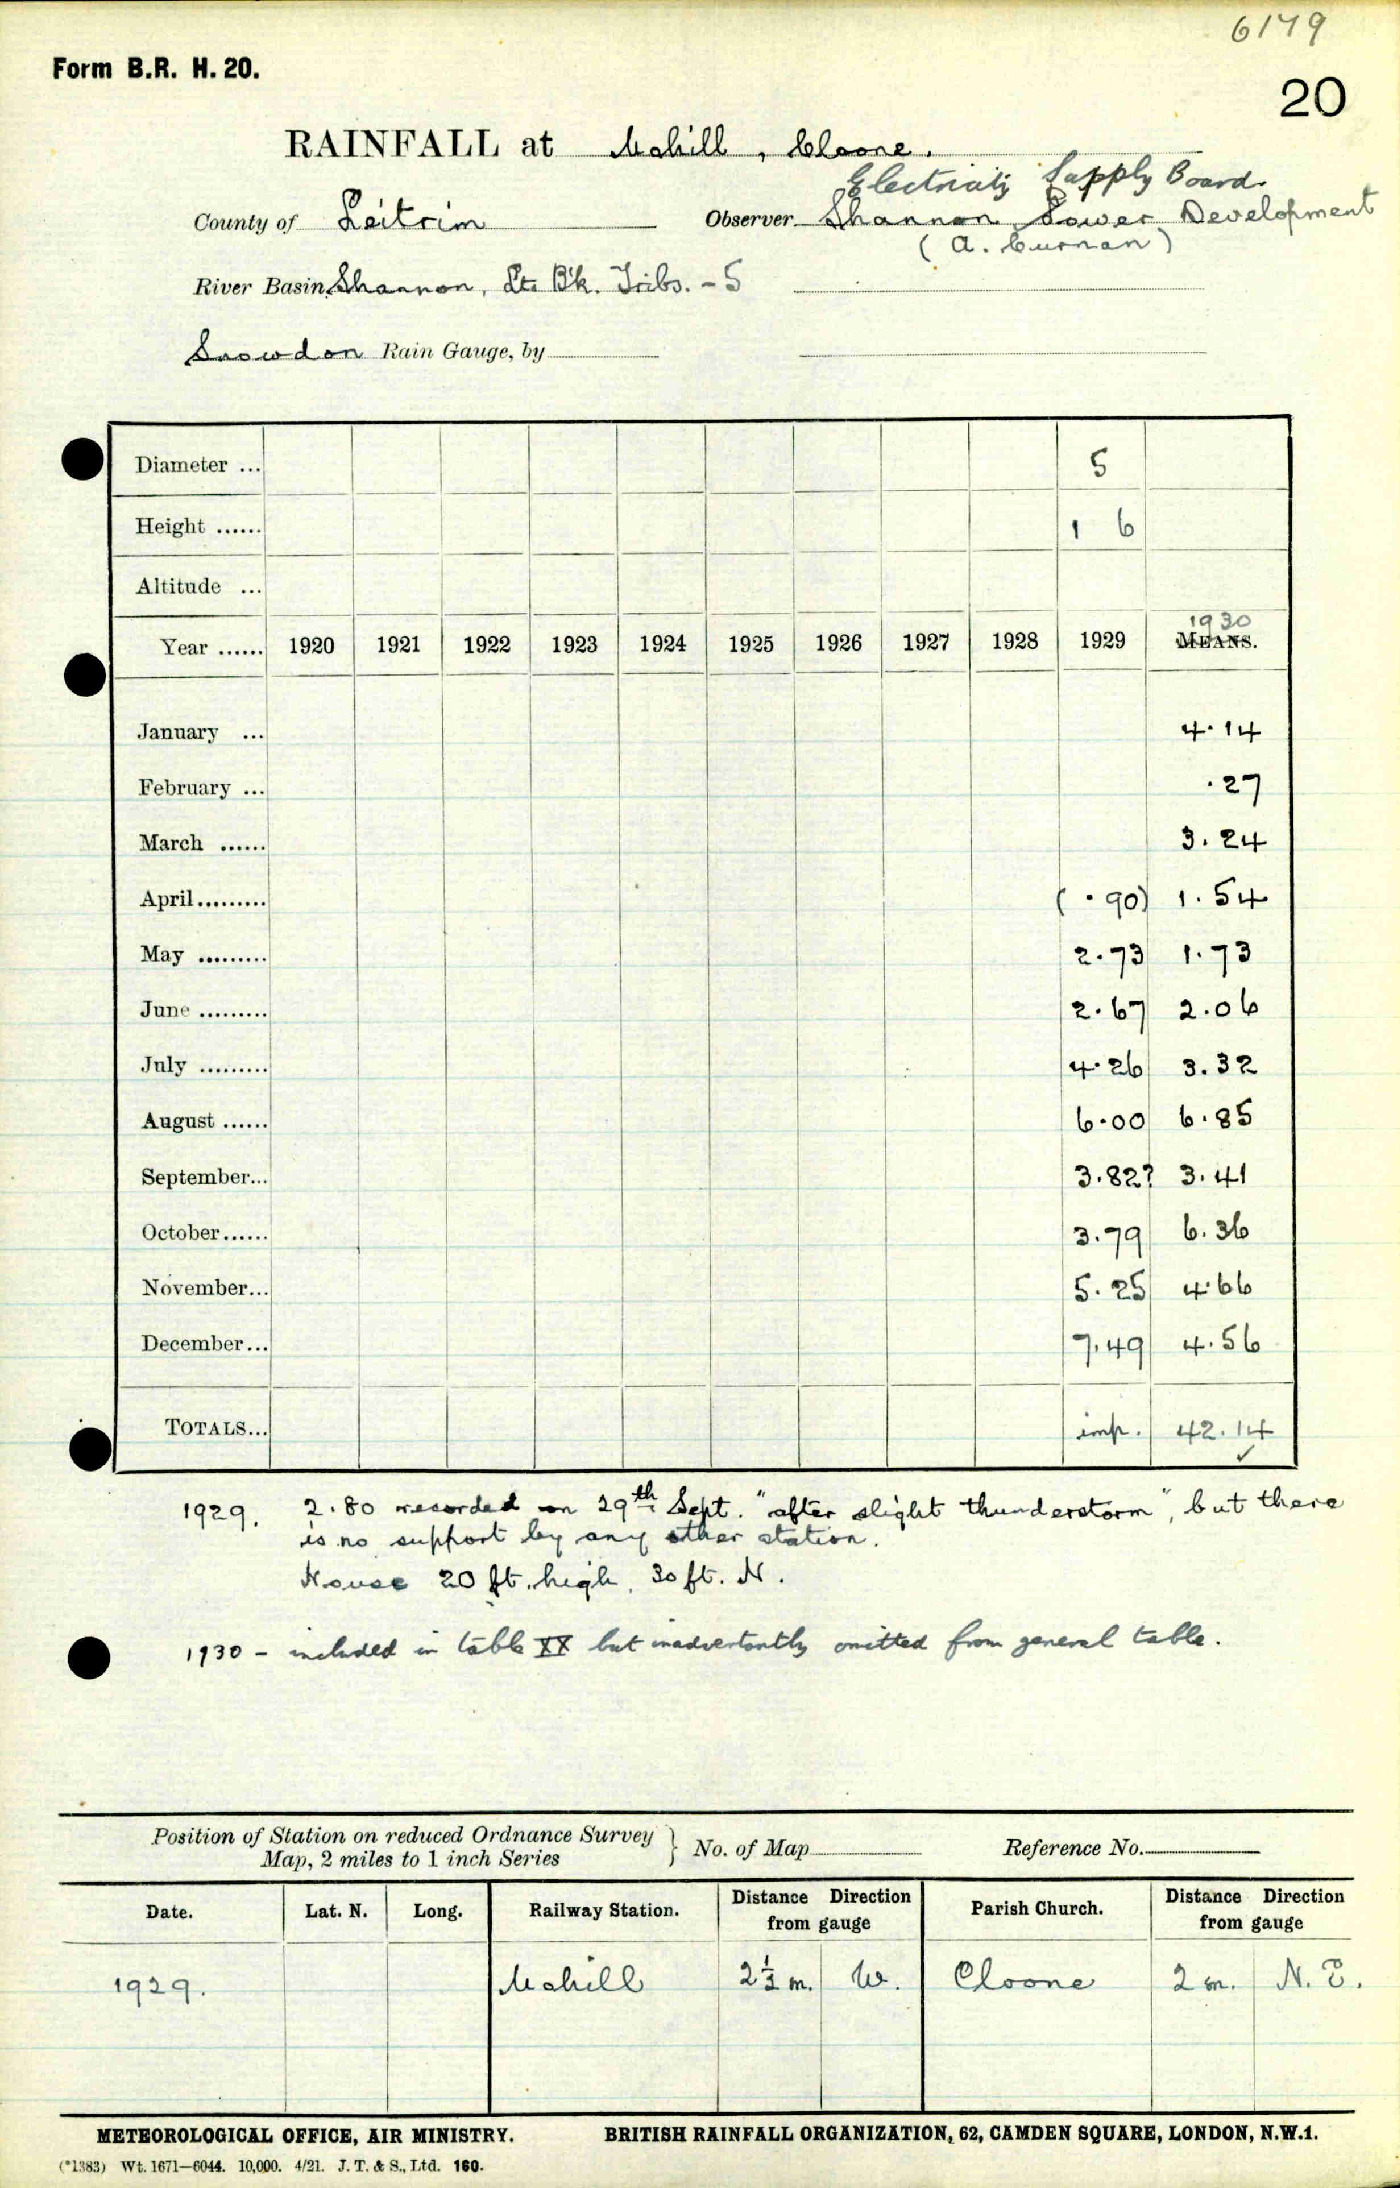 6179
Form B.R. H. 20.
20
RAINFALL at Mohill, Cloone.
Electricity Supply Board.
County of Leitrim Observer Shannon Power Development
(A. Curnan)
River Basin Shannon, Lt. Bk. Tribs. - 5
Snowdon Rain Gauge, by
Diameter ... 5
Height ...... 1 6
Altitude ...
1930
Year ...... 1920 1921 1922 1923 1924 1925 1926 1927 1928 1929 MEANS.
January ... 4.14
February ... .27
March ...... 3.24
April......... (.90) 1.54
May ......... 2.73 1.73
June ......... 2.67 2.06
July ......... 4.26 3.32
August ...... 6.00 6.85
September... 3.82? 3.41
October...... 3.79 6.36
November... 5.25 4.66
December... 7.49 4.56
TOTALS... imp. 42.14
✓
1929. 2.80 recorded on 29th Sept. "after slight thunderstorm", but there
is no support by any other station.
House 20 ft. high, 30 ft. N.
1930 - included in table XX but inadvertantly omitted from general table.
Position of Station on reduced Ordnance Survey
Map, 2 miles to 1 inch Series } No. of Map Reference No.
Date. Lat. N. Long. Railway Station. Distance Direction from gauge Parish Church. Distance Direction from gauge
1929. Mohill 2½ m. W. Cloone 2 m. N.E.
METEOROLOGICAL OFFICE, AIR MINISTRY. BRITISH RAINFALL ORGANIZATION, 62, CAMDEN SQUARE, LONDON, N.W.1.
(*1383) Wt. 1671—6044. 10,000. 4/21. J. T. & S., Ltd. 160.